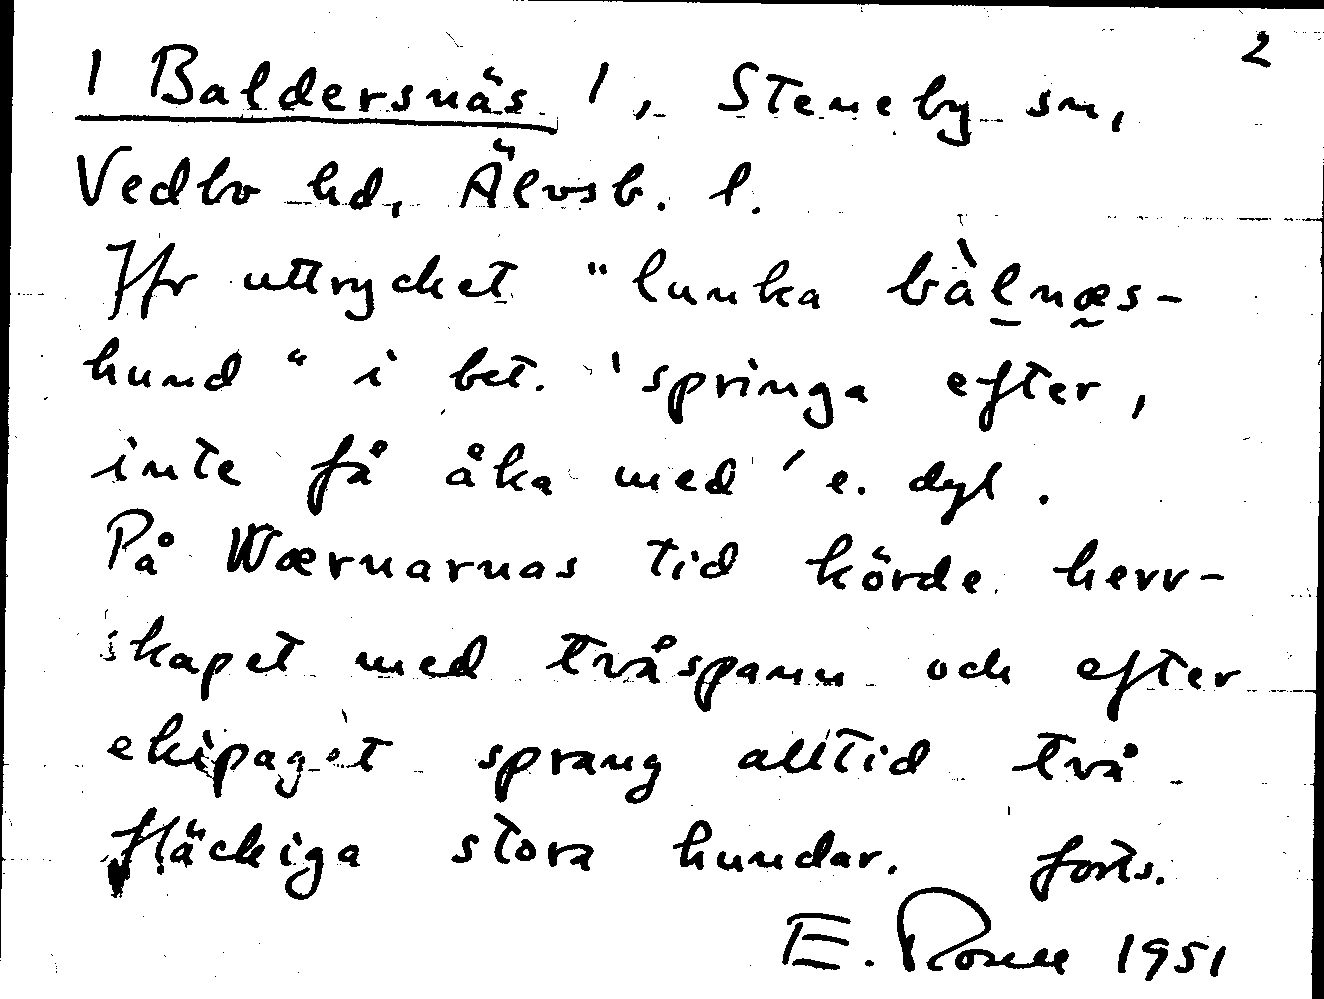 2
/ Baldersnäs /, Steneby sn,
Vedbo hd, Älvsb. l.
Jfr uttrycket "lunka bàlnæs-
hund" i bet. 'springa efter,
inte få åka med' e. dyl.
På Wærnarnas tid körde herr-
skapet med tvåspann och efter
ekipaget sprang alltid två
fläckiga stora hundar. forts.
E. 1951